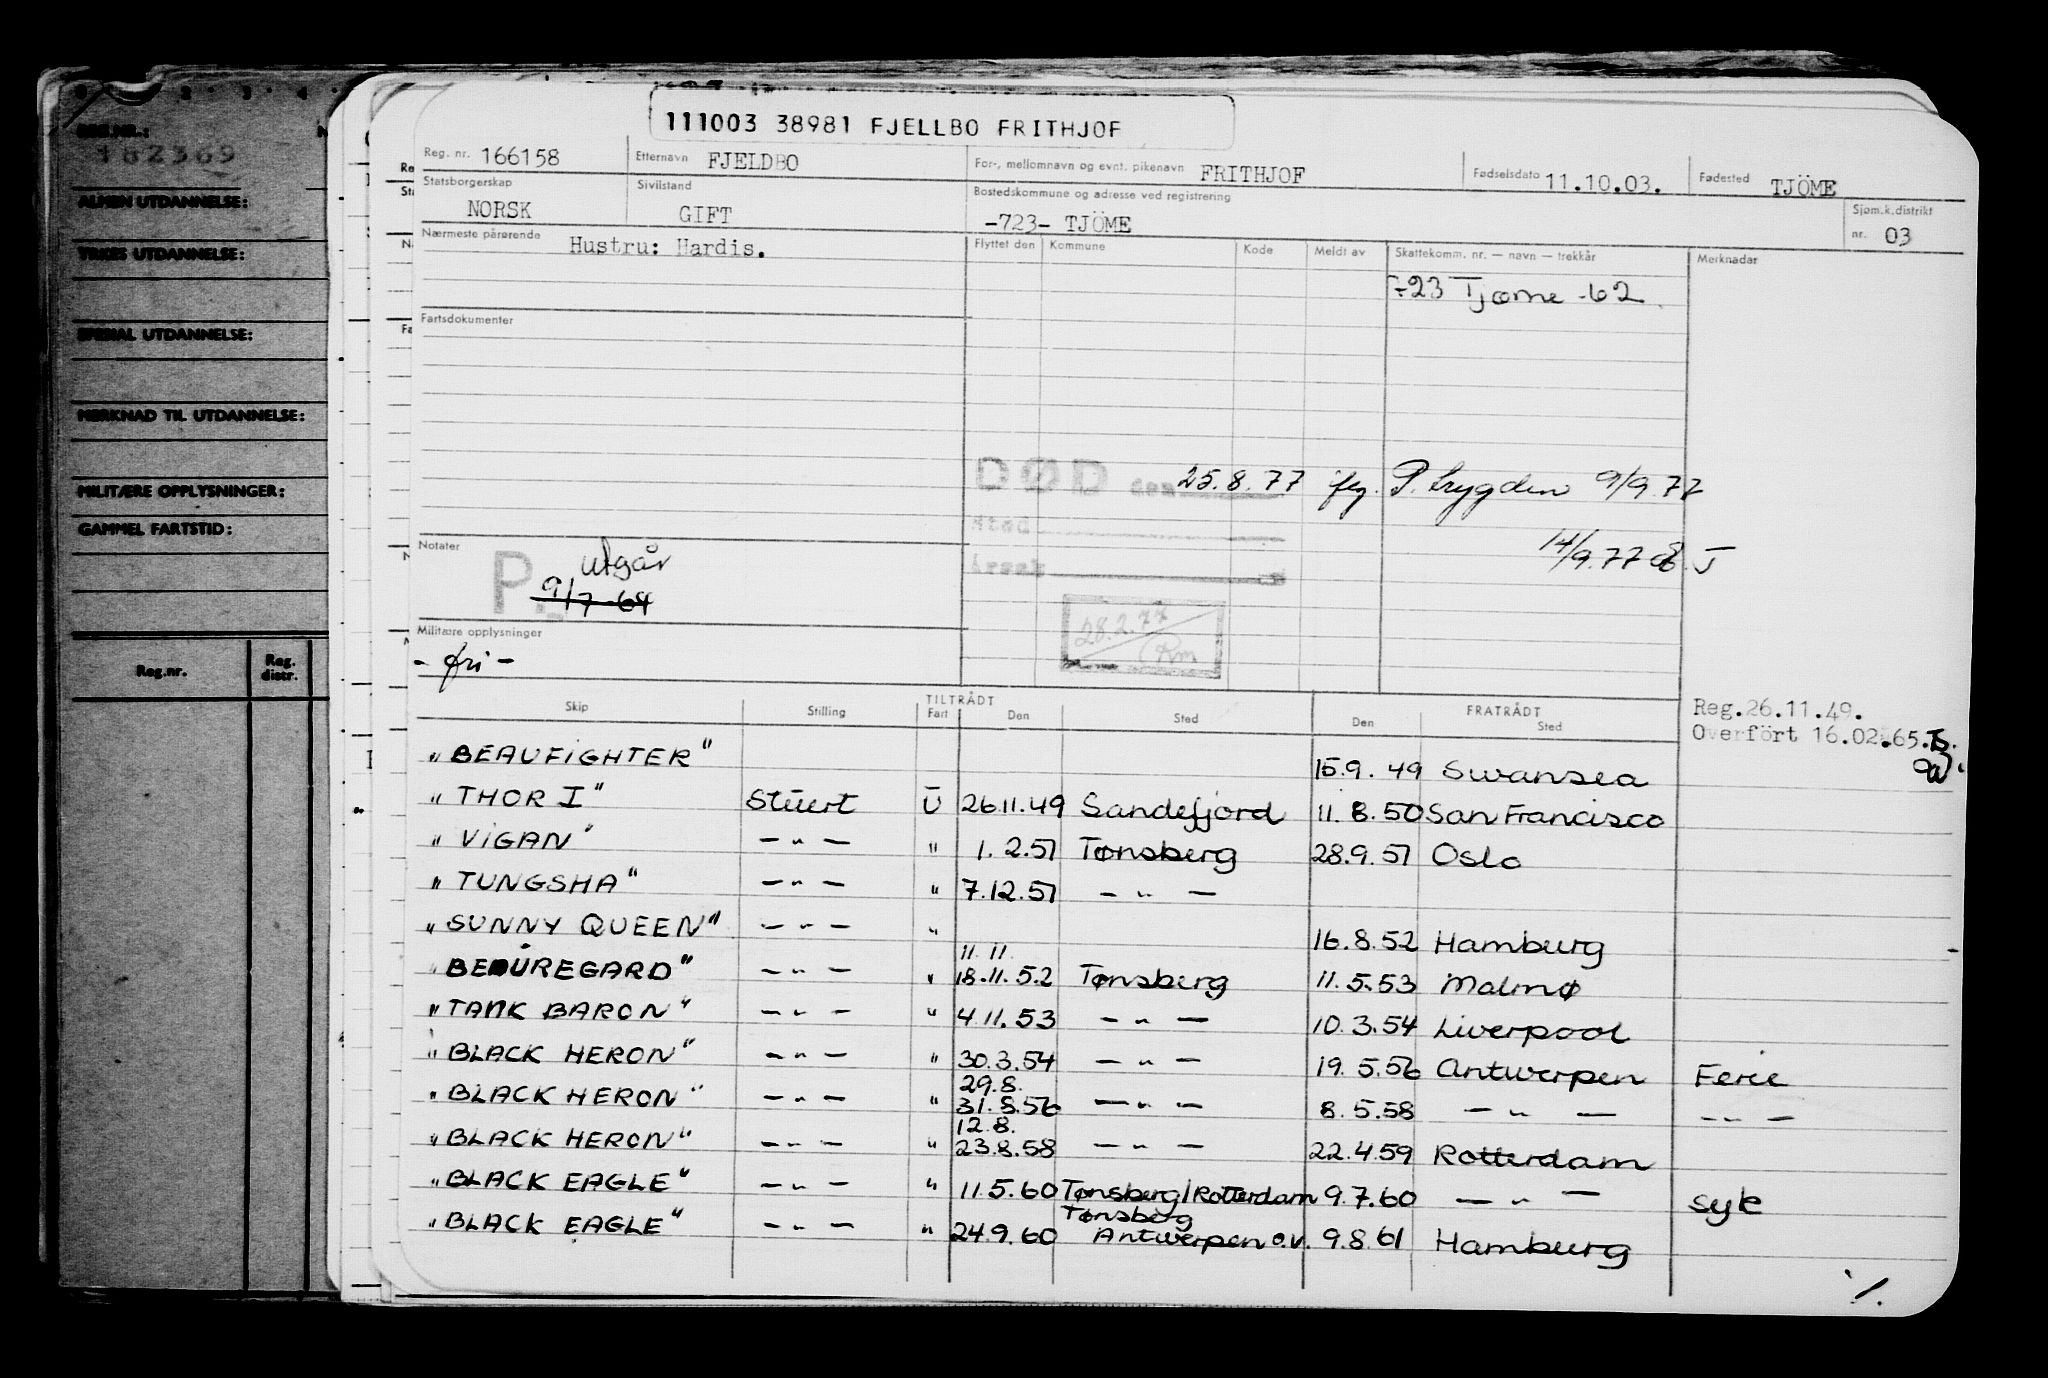 111003 38981 FJELLBO FRITHJOF
Reg. nr. 166158 Etternavn FJELDBO For-, mellomnavn og evnt. pikenavn FRITHJOF Fødselsdato 11.10.03. Fødested TJÖME
Statsborgerskap NORSK Sivilstand GIFT Bostedskommune og adresse ved registrering -723- TJÖME Sjøm.k.distrikt nr. 03
Nærmeste pårørende Hustru: Hardis. Flyttet den Kommune Kode Meldt av Skattekomm. nr. — navn — trekkår Merknader
723 Tjøme -62
Fartsdokumenter
DØD den 25.8.77 P. trygden 9/9.77
Sted
Årsak
14/9.77
Notater
P. utgår
9/7-64
28.2.77
Rm
Militære opplysninger
- fri -
Reg.26.11.49.
Overfört 16.02.65.
Skip Stilling TILTRÅDT Fart Den Sted FRATRÅDT Den Sted
"BEAUFIGHTER" 15.9.49 Swansea
"THOR I" Stuert U 26.11.49 Sandefjord 11.8.50 San Francisco
"VIGAN" — " — " 1.2.51 Tønsberg 28.9.51 Oslo
"TUNGSHA" — " — " 7.12.51 — " —
"SUNNY QUEEN" — " — " 16.8.52 Hamburg
11.11.
"BEAUREGARD" — " — " 18.11.52 Tønsberg 11.5.53 Malmø
"TANK BARON" — " — " 4.11.53 — " — 10.3.54 Liverpool
"BLACK HERON" — " — " 30.3.54 — " — 19.5.56 Antwerpen Ferie
29.8.
"BLACK HERON" — " — " 31.8.56 — " — 8.5.58 — " — — " —
12.8.
"BLACK HERON" — " — " 23.8.58 — " — 22.4.59 Rotterdam
"BLACK EAGLE" — " — " 11.5.60 Tønsberg/Rotterdam 9.7.60 — " — syk
Tønsberg
"BLACK EAGLE" — " — " 24.9.60 Antwerpen o.v. 9.8.61 Hamburg
%
REG.NR.:
182369
ALMEN UTDANNELSE:
YRKES UTDANNELSE:
SPESIAL UTDANNELSE:
MERKNAD TIL UTDANNELSE:
MILITÆRE OPPLYSNINGER:
GAMMEL FARTSTID:
Reg.nr. Reg. distr.